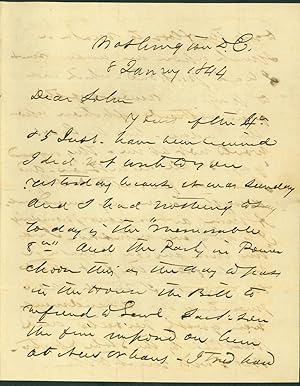 Washington D.C.
8 Janry 1844
Dear John
Yours of the 4th
& 5 Inst. have been received
I did not write to you
yesterday because it was Sunday
and I had nothing to say
to day is the "memorable
8th" and the Party in Power
chosen this as the day to pass
in the House the Bill to
refund to Genl Jackson
the fine imposed on him
at New Orleans - I tried hard